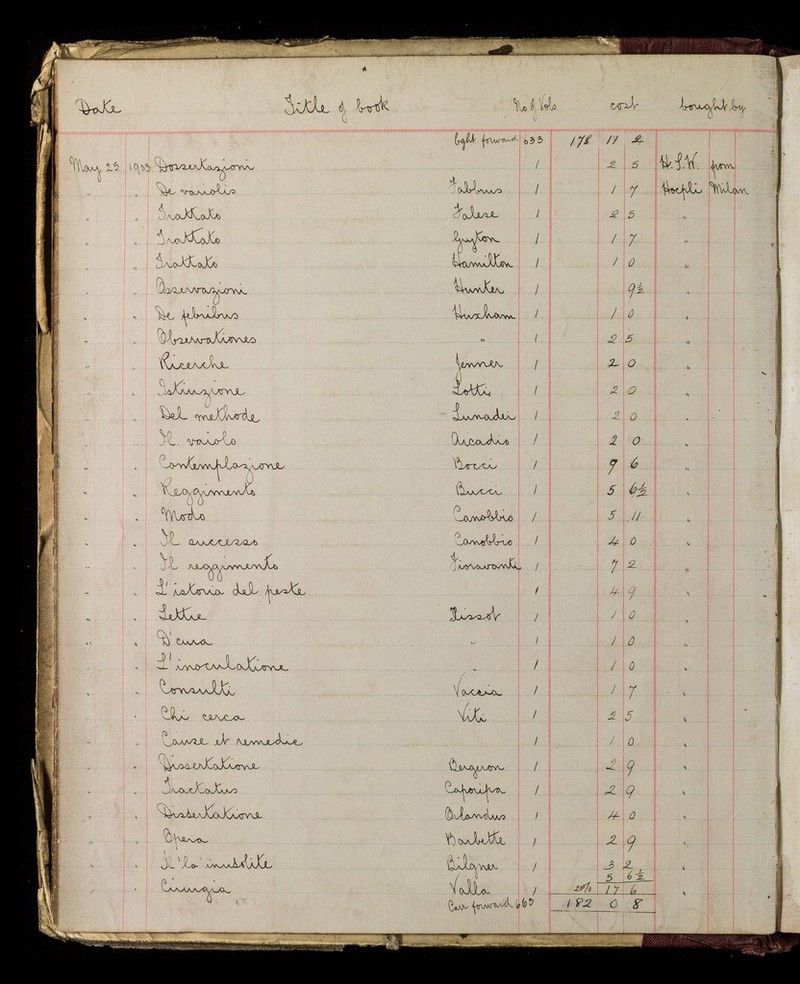 Date Title of book No of Vols cost bought by
bght forward 633 178 17 2
May 25 1903 Dossertazioni 1 2 5 H.S.W. from
" " De variolis Fabbrus 1 1 7 Hoepli Milan
" " Trattato Falese 1 2 5 "
" " Trattato Guyton 1 1 7 "
" " Trattato Hamilton 1 1 0 "
" " Osservazioni Hunter 1 9½ "
" " De febribus Huxham 1 1 0 "
" " Observationes " 1 2 5 "
" " Ricerche Jenner 1 2 0 "
" " Istinzione Lotti 1 2 0 "
" " Del methode Lunadei 1 2 0 "
" " Il vaiolo Arcadio 1 2 0 "
" " Contemplazione Bocci 1 9 6 "
" " Reggimento Bucci 1 5 6½ "
" " Modo Canobbio 1 5 11 "
" " Il successo Canobbio 1 4 0 "
" " Il reggimento Fioravanti 1 7 2 "
" " L'istoria del peste 1 4 9 "
" " Lettre Tissot 1 1 0 "
" " D'cura " 1 1 0 "
" " L'inoculatione " 1 1 0 "
" " Consulti Vaccia 1 1 7 "
" " Chi cerca Viti 1 2 5 "
" " Cause et remedie 1 1 0 "
" " Dissertatione Bergeron 1 2 9 "
" " Tractatus 1 2 9 "
" " Dissertatione Orlandus 1 4 0 "
" " Opera Barbette 1 2 9 "
" " Il'la' inusolite Bilguer 1 3 2 "
5 6½
" " Cirurgia Valla 1 20% 17 6 "
Carr forward 663 182 0 8